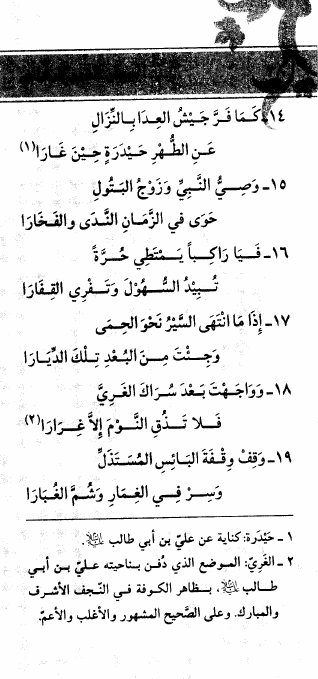 ١٤ـ كَمَا فَرَّ جَيْشُ العِدَا بِالنِّزَالِ
عَنِ الطُّهْرِ حَيْدَرَةٍ حِيْنَ غَارَا(١)
١٥ـ وَصِيُّ النَّبِيِّ وَزَوْجُ البَتُولِ
حَوَى في الزَّمَانِ النَّدَى والفَخَارَا
١٦ـ فَيَا رَاكِباً يَمْتَطِي حُرَّةً
تُبِيْدُ السُّهُوْلَ وَتَفْرِي القِفَارَا
١٧ـ إِذَا مَا انْتَهَى السَّيْرُ نَحْوَ الحِمَى
وَجِئْتَ مِنَ البُعْدِ تِلْكَ الدِّيَارَا
١٨ـ وَوَاجَهْتَ بَعْدَ سُرَاكَ الغَرِيَّ
فَلا تَذُقِ النَّوْمَ إِلاَّ غِرَارَا(٢)
١٩ـ وَقِفْ وِقْفَةَ البَائِسِ المُسْتَذَلِّ
وَسِرْ فِي الغِمَارِ وَشُمَّ الغُبَارَا
١ ـ حَيْدَرة: كناية عن عليّ بن أبي طالب .
٢ ـ الغَرِيّ: الموضع الذي دُفـن بـناحيته عليّ بـن أبي
طالب ، بـظاهر الكوفة في النّجف الأشرف
والمبارك. وعلى الصَّحيح المشهور والأغلب والأعمّ.